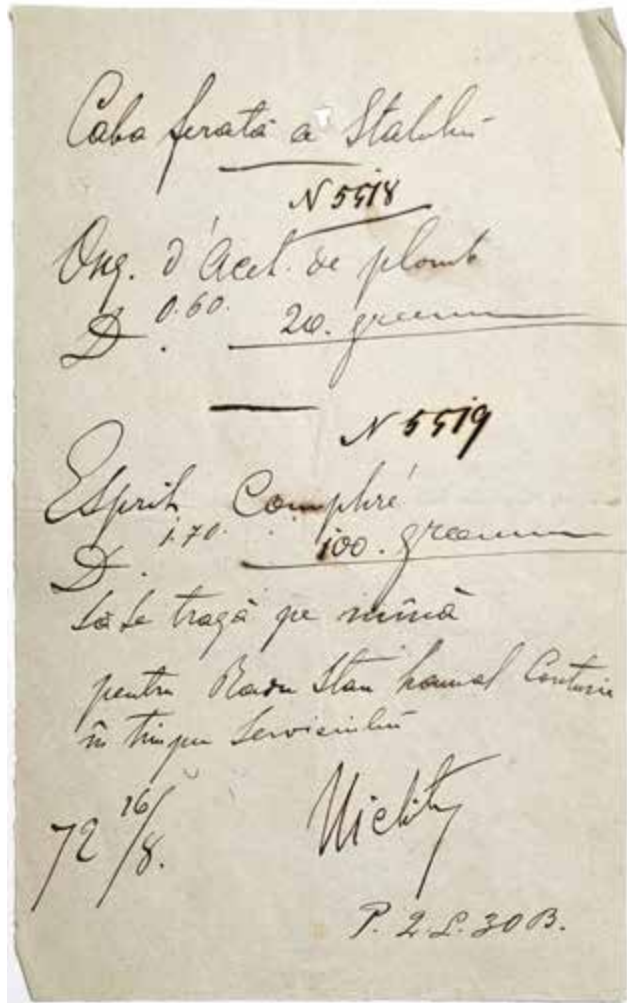 Calea ferată a Statului
N 5518
Ong. d'Acet. de plomb
D. 0.60. 20. gramm
N 5519
Esprit Camphré
D. 1.70. 100. gramm
Să se tragă pe mînă
pentru Radu Stan hamal
în timpu serviciului
72 16/8.
P. 2. L. 30 B.